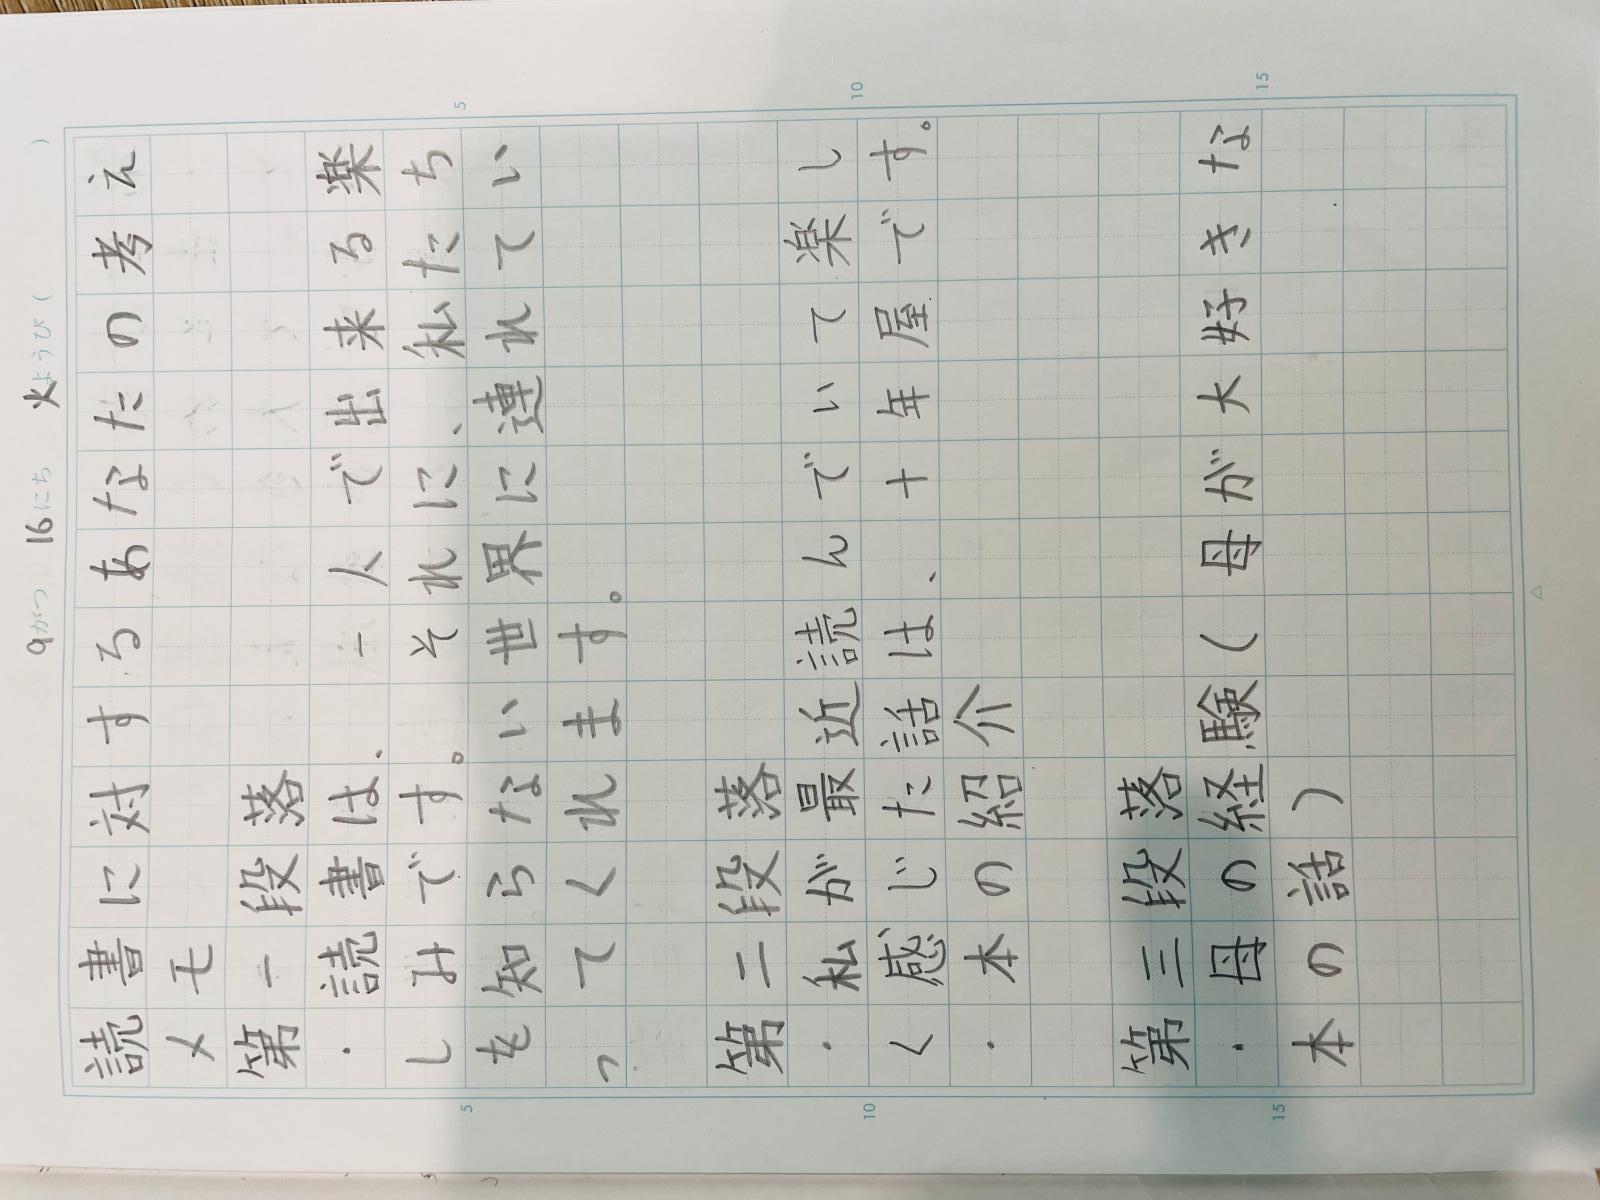 9がつ 16にち 火ようび( )
読書に対するあなたの考え
メモ
第一段落
・読書は、一人で出来る楽
しみです。それに、私たち
を知らない世界に連れてい
ってくれます。
第二段落
・私が最近読んでいて楽し
く感じた話は、十年屋です。
・本の紹介
第三段落
・母の経験(母が大好きな
本の話)
5
5
10
10
15
15